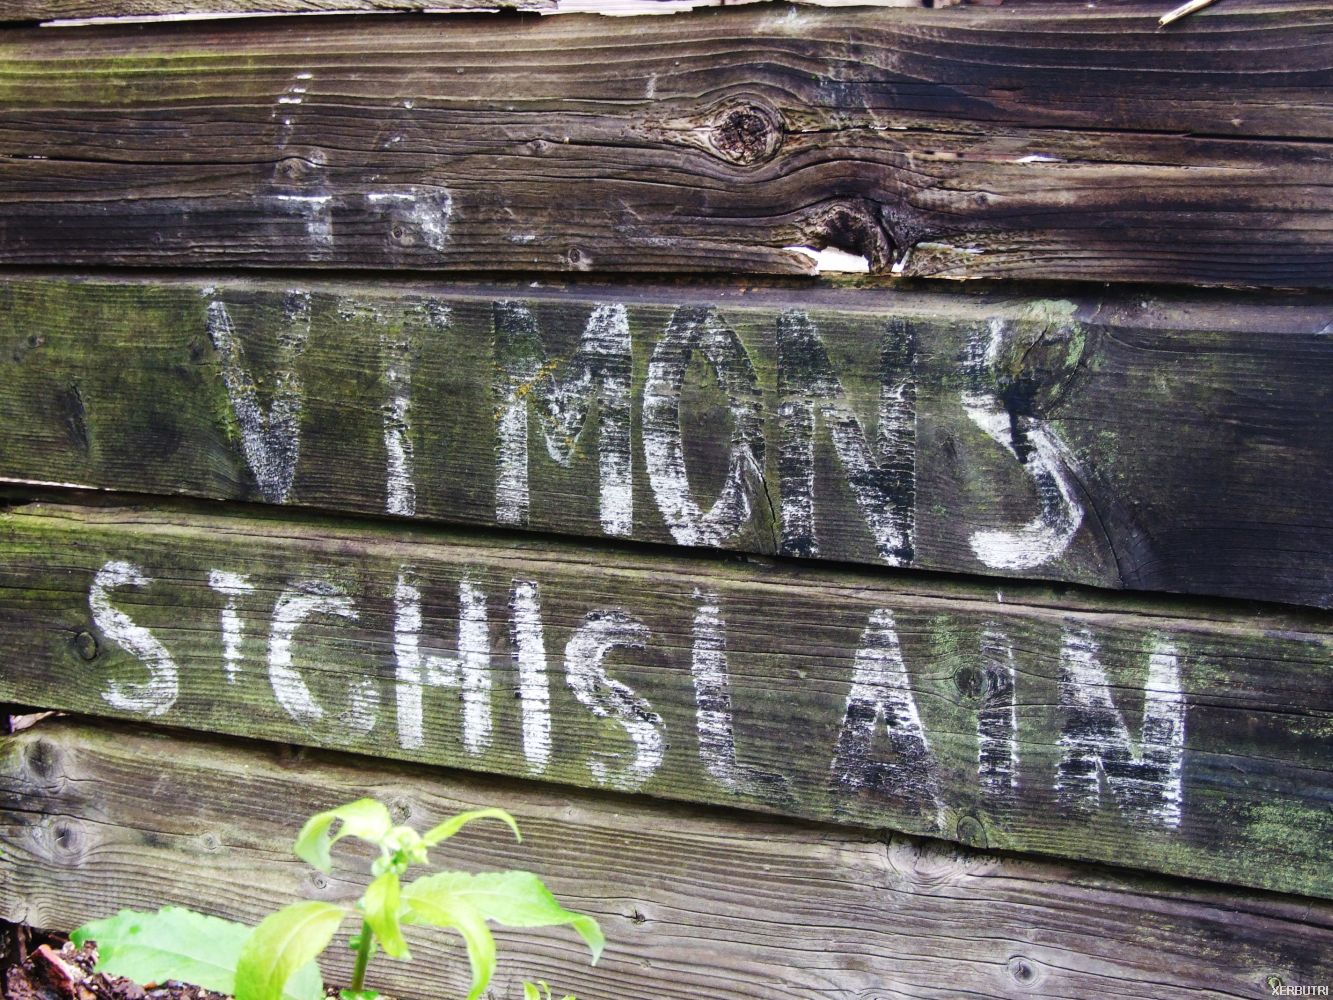 VT MONS
ST GHISLAIN
XERBUTRI